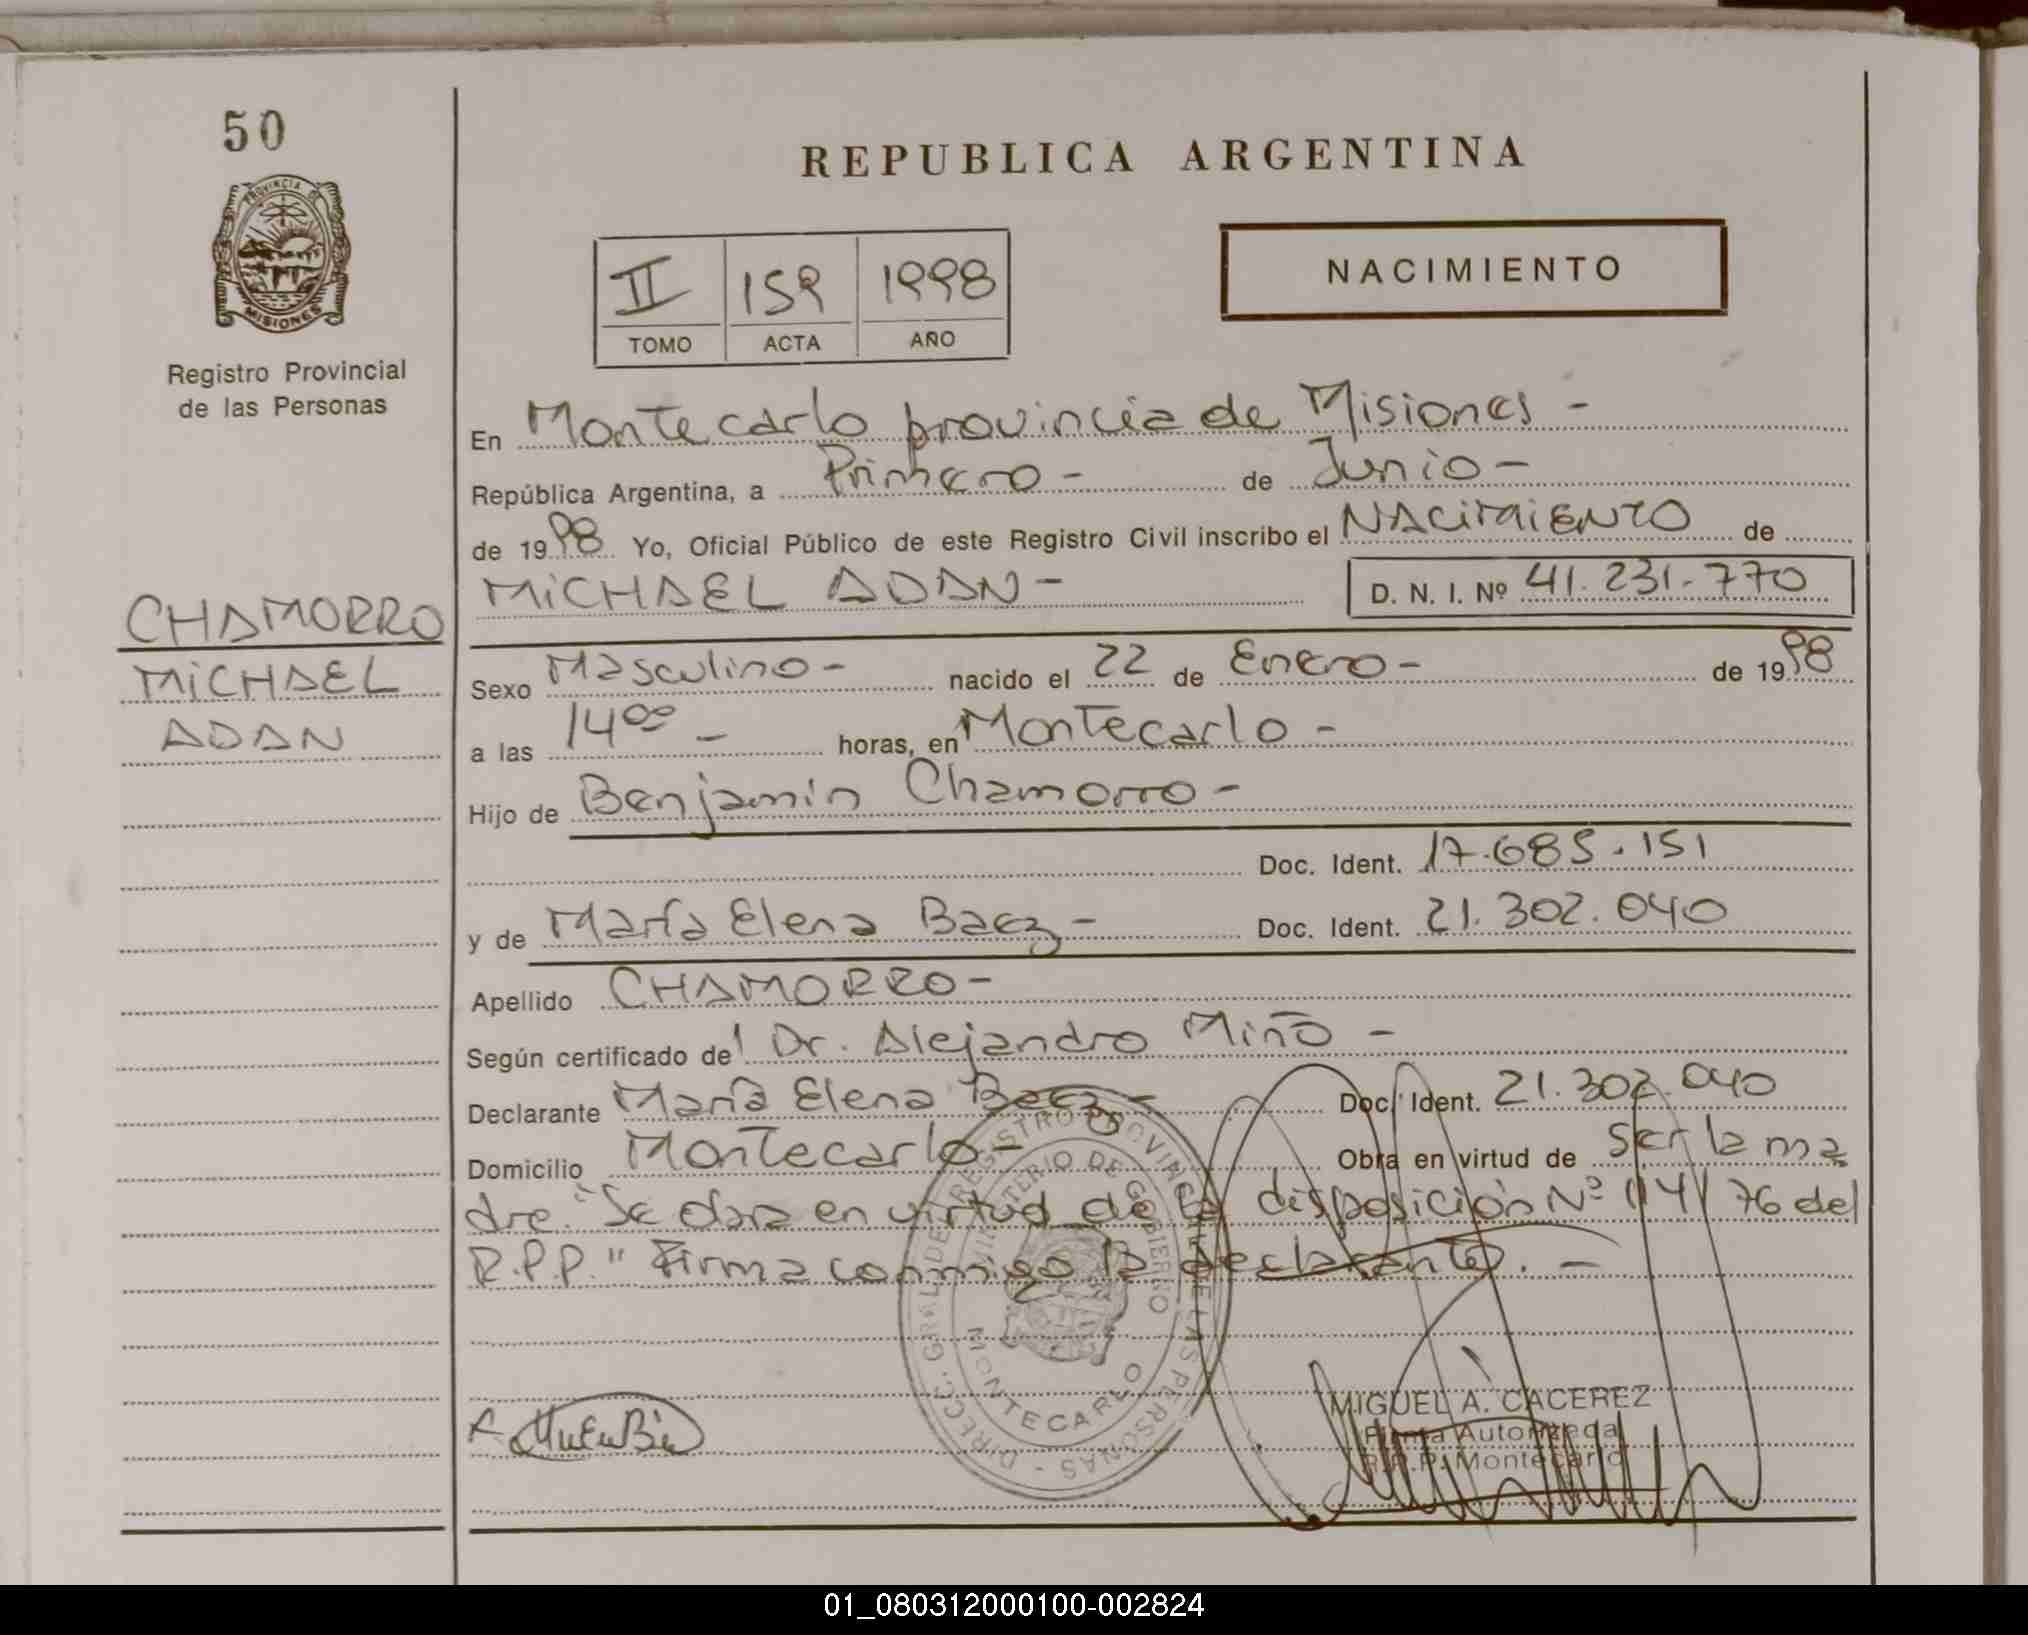 50
REPUBLICA ARGENTINA
PROVINCIA DE
MISIONES
Registro Provincial
de las Personas
II 159 1998
TOMO ACTA AÑO
NACIMIENTO
En Montecarlo provincia de Misiones -
República Argentina, a Primero - de Junio -
de 1998 Yo, Oficial Público de este Registro Civil inscribo el NACIMIENTO de
MICHAEL ADAN - D. N. I. Nº 41.231.770
CHAMORRO
MICHAEL
ADAN
Sexo Masculino - nacido el 22 de Enero - de 1998
a las 14⁰⁰ - horas, en Montecarlo -
Hijo de Benjamín Chamorro -
Doc. Ident. 17.685.151
y de María Elena Baez - Doc. Ident. 21.302.040
Apellido CHAMORRO -
Según certificado del Dr. Alejandro Miño -
Declarante María Elena Baez - Doc. Ident. 21.302.040
Domicilio Montecarlo - Obra en virtud de ser la ma
dre. "Se labra en virtud de la disposición Nº 114/76 del
R.P.P." Firma conmigo la declarante. -
DIRECC. GRAL. DE REGISTRO PROVINCIAL DE LAS PERSONAS -
MINISTERIO DE GOBIERNO
MONTECARLO
MIGUEL A. CACEREZ
Firma Autorizada
R.P.P. Montecarlo
01_080312000100-002824